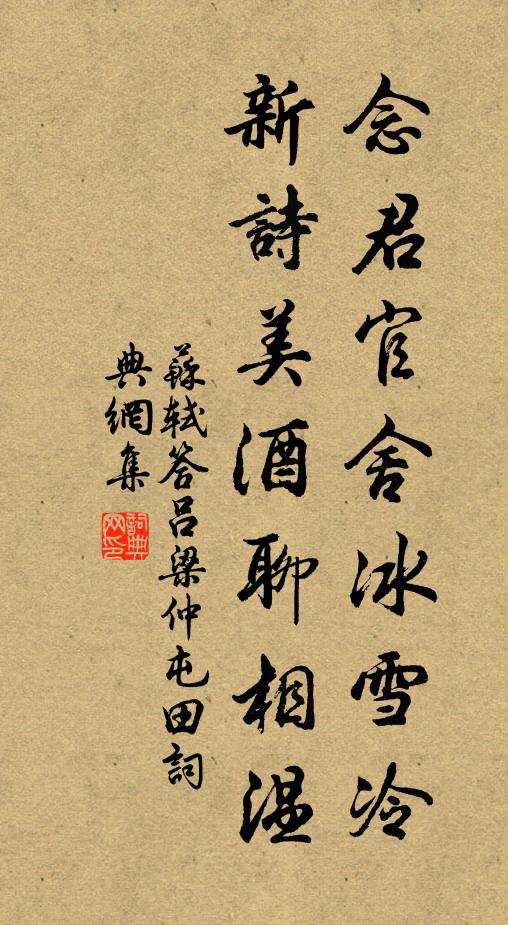 念君官舍冰雪冷
新詩美酒聊相温
蘇軾答呂梁仲屯田詞
典網集
詞典网印